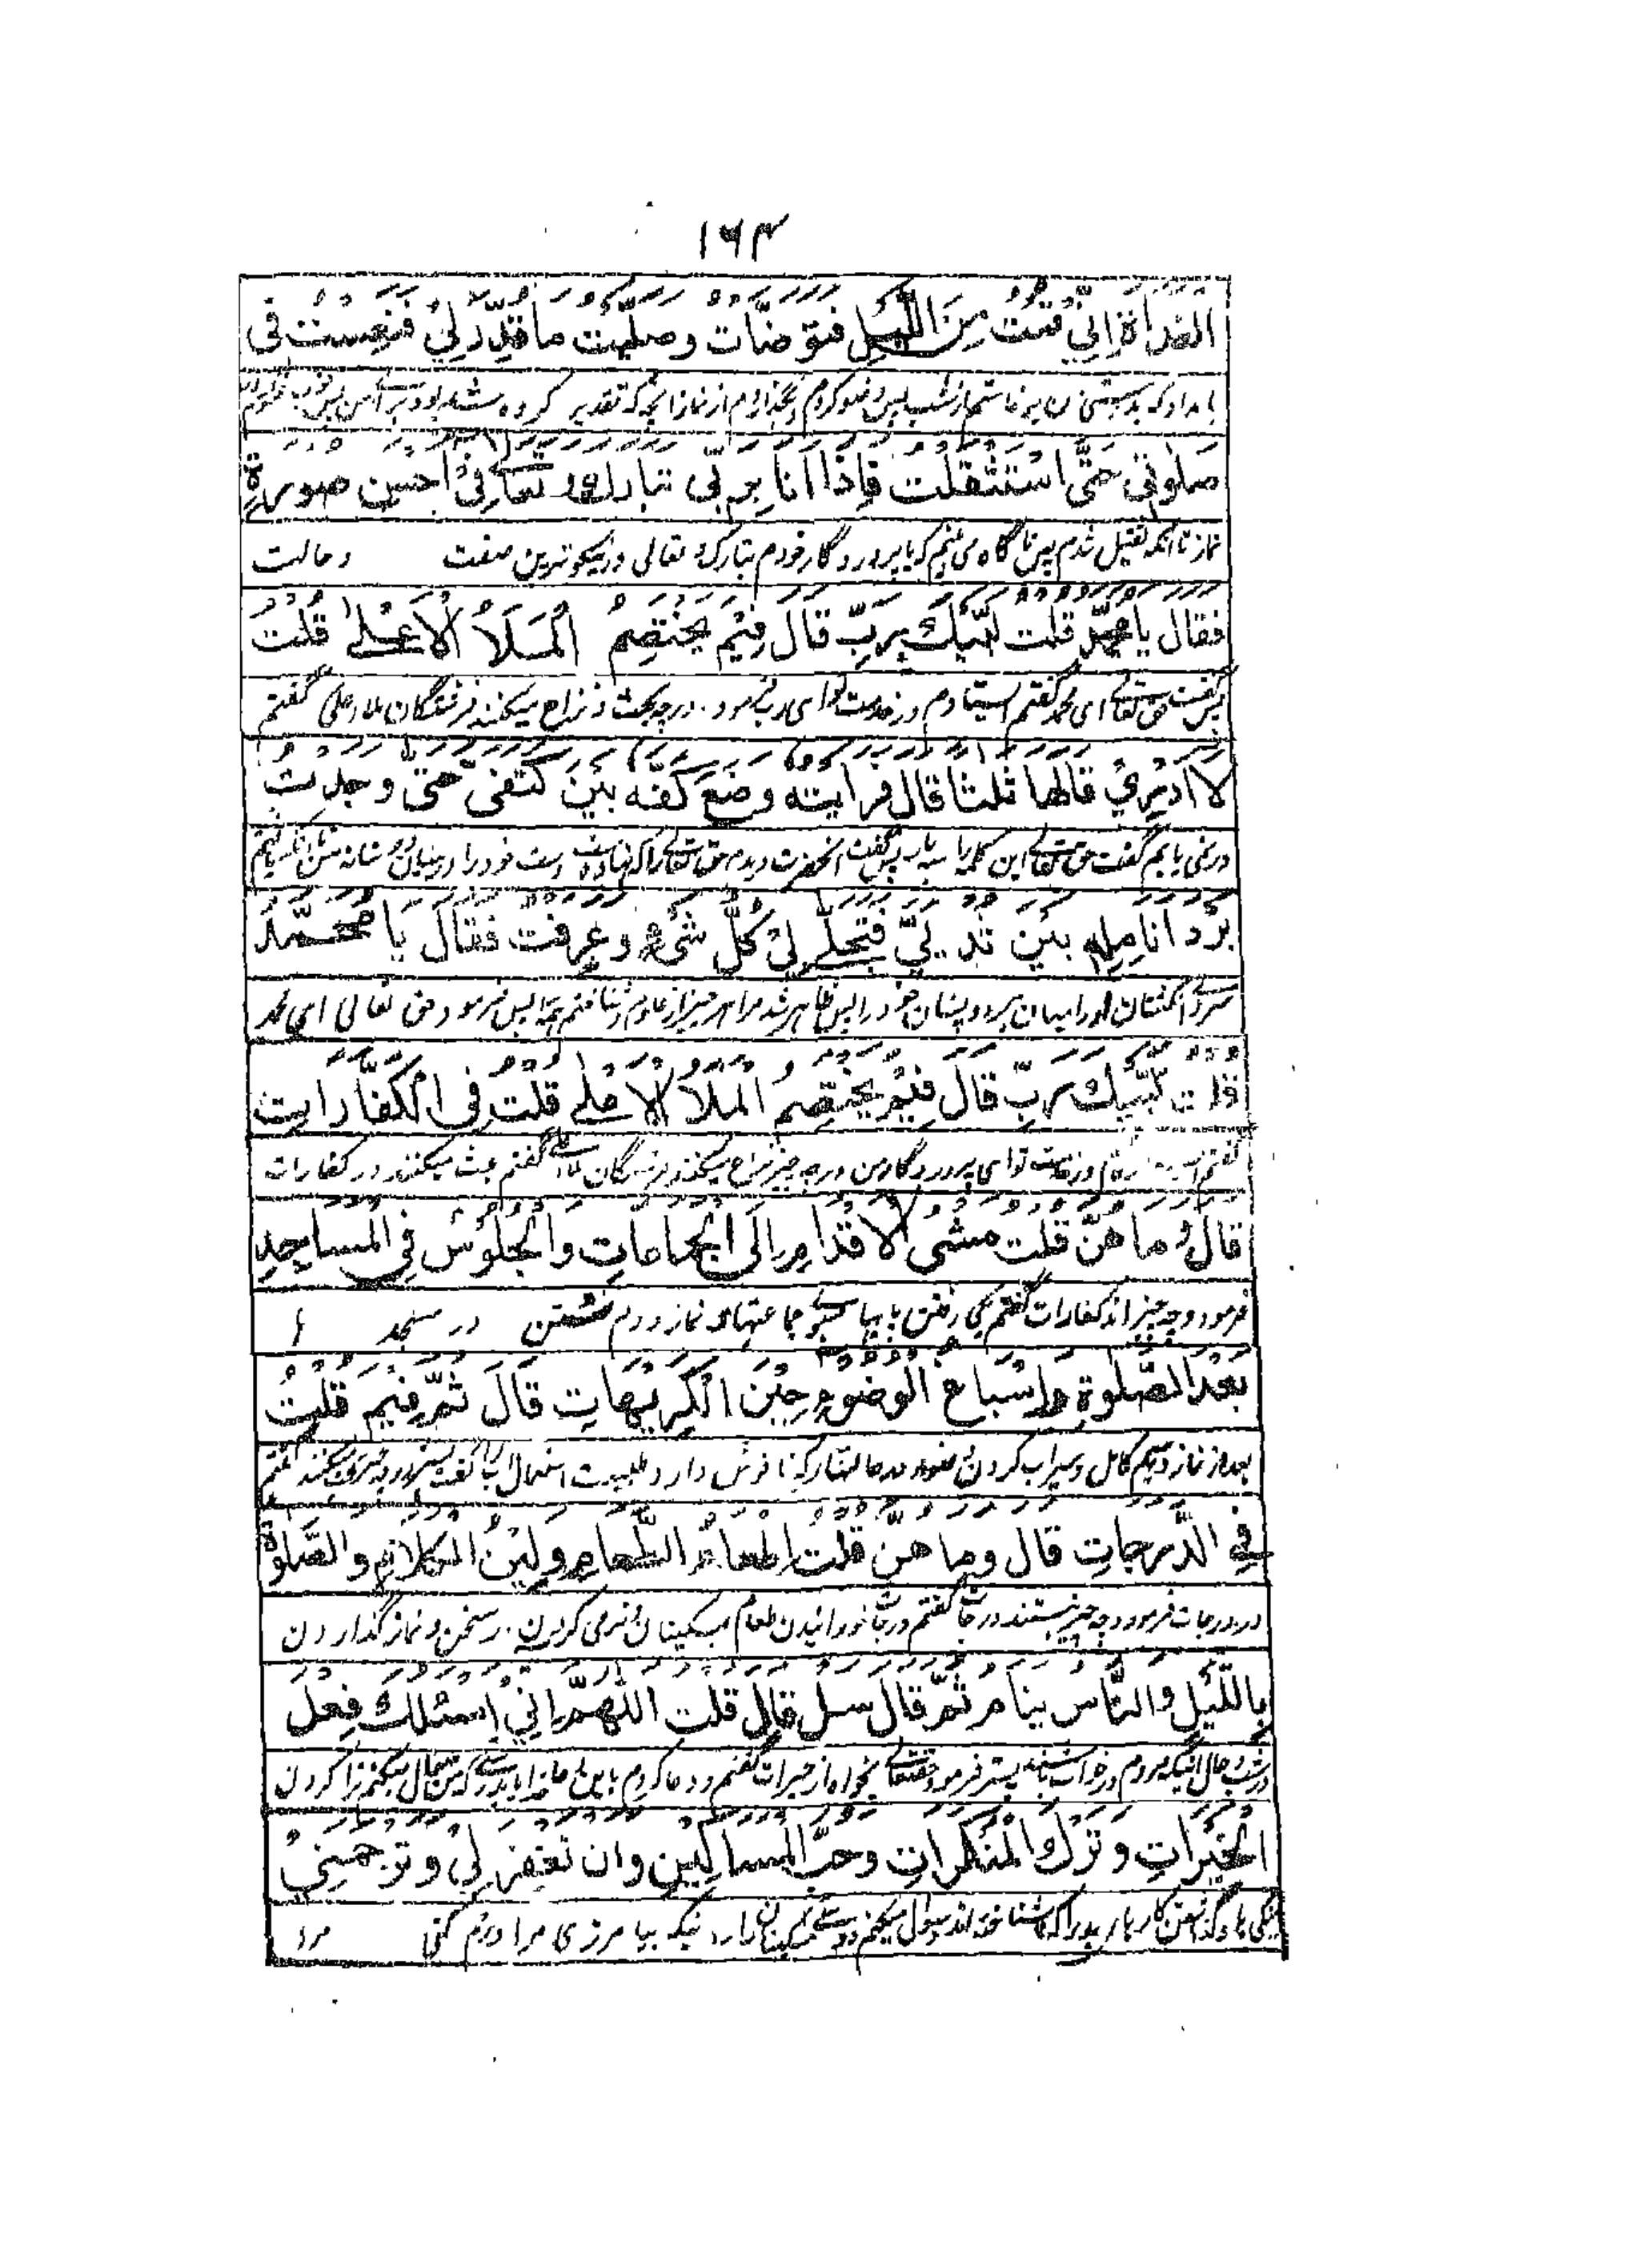 ۱۶۴
الغداة اِنِّیْ قمت مِنَ اللَّیْلِ فتوضّات وصلّیت ماقُدِّرَ لِیْ فنعست فی
بامداد که بدرستی من برخاستم از شب پس وضو کردم و گذاردم از نماز انچه که تقدیر کرده شده بود
صلوتی حتّٰی اسْتَثْقَلْت فَاِذَا اَنَا بِرَبِّی تبارك و تعالٰے فِیْ احسن صورةٍ
نماز تا انکه ثقیل شدم پس ناگاه می بینم که با پروردگار خودم تبارک و تعالی در نیکوترین صفت و حالت
فقال یا محمّد قلت لبّیك ربِّ قَالَ فِیْمَ یَخْتَصِمُ الْمَلَأُ الْاَعْلٰے قُلْتُ
پس گفت حق تعالے ای محمد گفتم ایستادم در خدمت تو ای رب فرمود در چه بحث و نزاع میکنند فرشتگان ملاء اعلی گفتم
لا اَدْرِیْ قَالَهَا ثلثا قال فرایته وضعَ کَفَّه بَیْنَ کتفیّ حتی وجدتُ
در نمی یابم گفت حق تعالے این کلمه را سه بار پس گفت انحضرت دیدم حق تعالے را که نهاد دست خود را در میان دو شانه من
بَرْدَ انامِلِهٖ بَیْنَ ثَدْیَیَّ فتجلّٰے لِیْ کُلُّ شَیْءٍ وعرفت فَقَالَ یَا مُحَمَّدُ
سردی انگشتان او را میان هر دو پستان خود پس ظاهر شد مرا هر چیز از علوم و شناختم همه را پس فرمود حق تعالی ای محمد
قلت لبّیك ربِّ قَالَ فِیْمَ یَخْتَصِمُ الْمَلَأُ الْاَعْلٰے قُلْتُ فِی الْکَفَّارَاتِ
گفتم در خدمت تو ای پروردگار من در چه چیز نزاع میکنند فرشتگان گفتم بحث میکنند در کفارات
قَالَ وَمَا هُنَّ قُلْت مَشْیُ الْاَقْدَامِ اِلَی الْجَمَاعَاتِ وَالْجُلُوْسُ فِی الْمَسَاجِدِ
فرمود و چه چیز اند کفارات گفتم یکی رفتن پایها بسوے جماعتهای نماز دوم نشستن در مسجد ها
بَعْدَ الصَّلٰوةِ وَاِسْبَاغ الوضوءِ حِیْنَ الْکَرِیْهَاتِ قَالَ ثُمَّ فِیْمَ قُلْتُ
بعد از نماز و سیم کامل و سیراب کردن وضو در حالتهای که ناخوش دارد طبیعت استعمال آب را
فِی الدَّرَجَاتِ قال وما هن قلت اِطْعَامُ الطَّعَامِ وَلِیْنُ الْکَلَامِ وَالصَّلٰوةُ
در درجات فرمود و چه چیز هستند درجات گفتم درجات خورانیدن طعام مسکینان و نرمی کردن در سخن و نماز گذاردن
بِاللَّیْلِ وَالنَّاسُ نِیَامٌ ثُمَّ قَالَ سل قال قلت اللّٰهُمَّ اِنِّیْ اسئلك فِعْلَ
در شب و حال انیکه مردم در خواب باشند پستر فرمود حقتعالے بخواه از خیرات گفتم و دعا کردم
الْخَیْرَاتِ وَتَرْكَ الْمُنْکَرَاتِ وَحُبَّ الْمَسَاکِیْنِ وان تغفِرَ لِیْ وَتَرْحَمَنِیْ
نیکی ها و گذاشتن کارهای بد را سوال میکنم دوستے مسکینان را و نیکه بیامرزی مرا و رحم کنی مرا